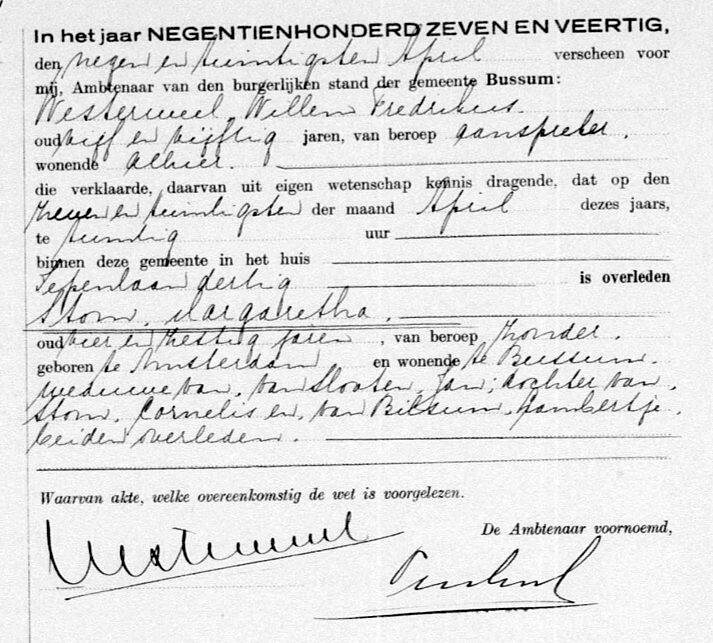 In het jaar NEGENTIENHONDERD ZEVEN EN VEERTIG,
den negen en twintigsten April verscheen voor
mij, Ambtenaar van den burgerlijken stand der gemeente Bussum:
Westerweel, Willem Frederikus.
oud vijf en vijftig jaren, van beroep aanspreker.
wonende alhier.
die verklaarde, daarvan uit eigen wetenschap kennis dragende, dat op den
zeven en twintigsten der maand April dezes jaars,
te twintig uur
binnen deze gemeente in het huis
Iepenlaan dertig is overleden
Stom, Margaretha.
oud vier en zestig jaren, van beroep zonder.
geboren te Amsterdam en wonende te Bussum.
weduwe van, van Slooten, Jan; dochter van,
Stom, Cornelis en, van Bilsum, Lambertje.
beiden overleden.
Waarvan akte, welke overeenkomstig de wet is voorgelezen.
Westerweel
De Ambtenaar voornoemd,